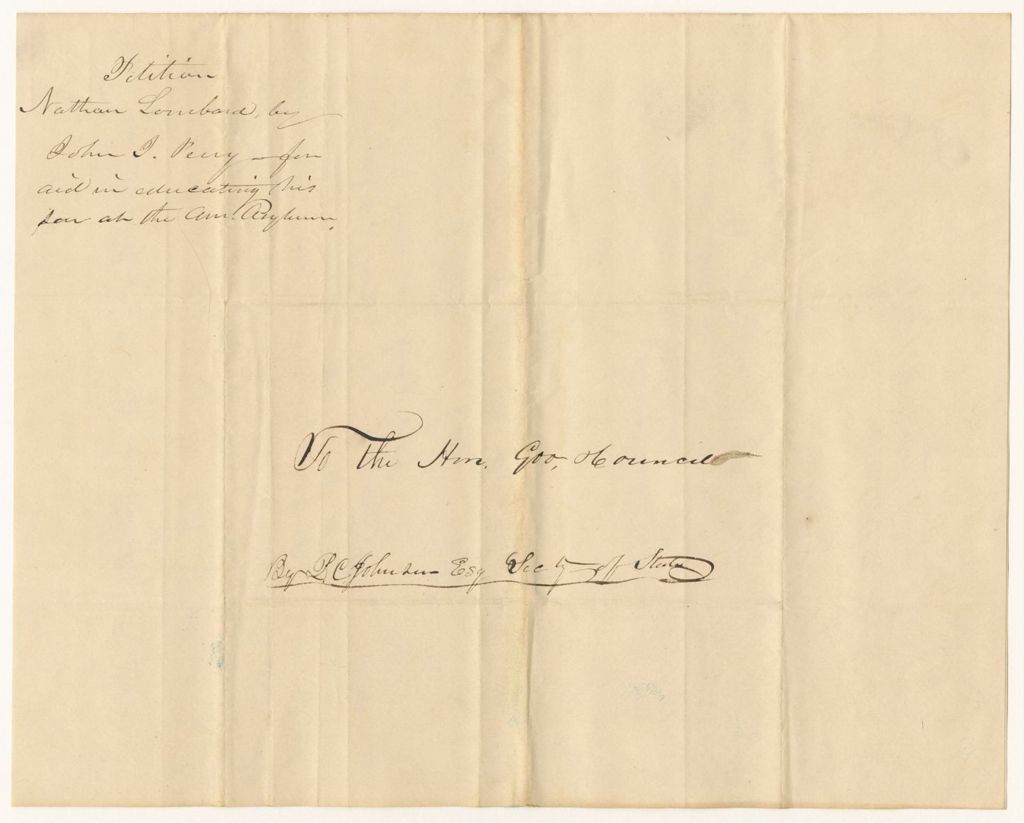 Petition
Nathan Lombard, by
John J. Perry - for
aid in educating his
son at the Am. Asylum.
To the Hon. Gov, & Council
By P. C. Johnson Esq Secty of State